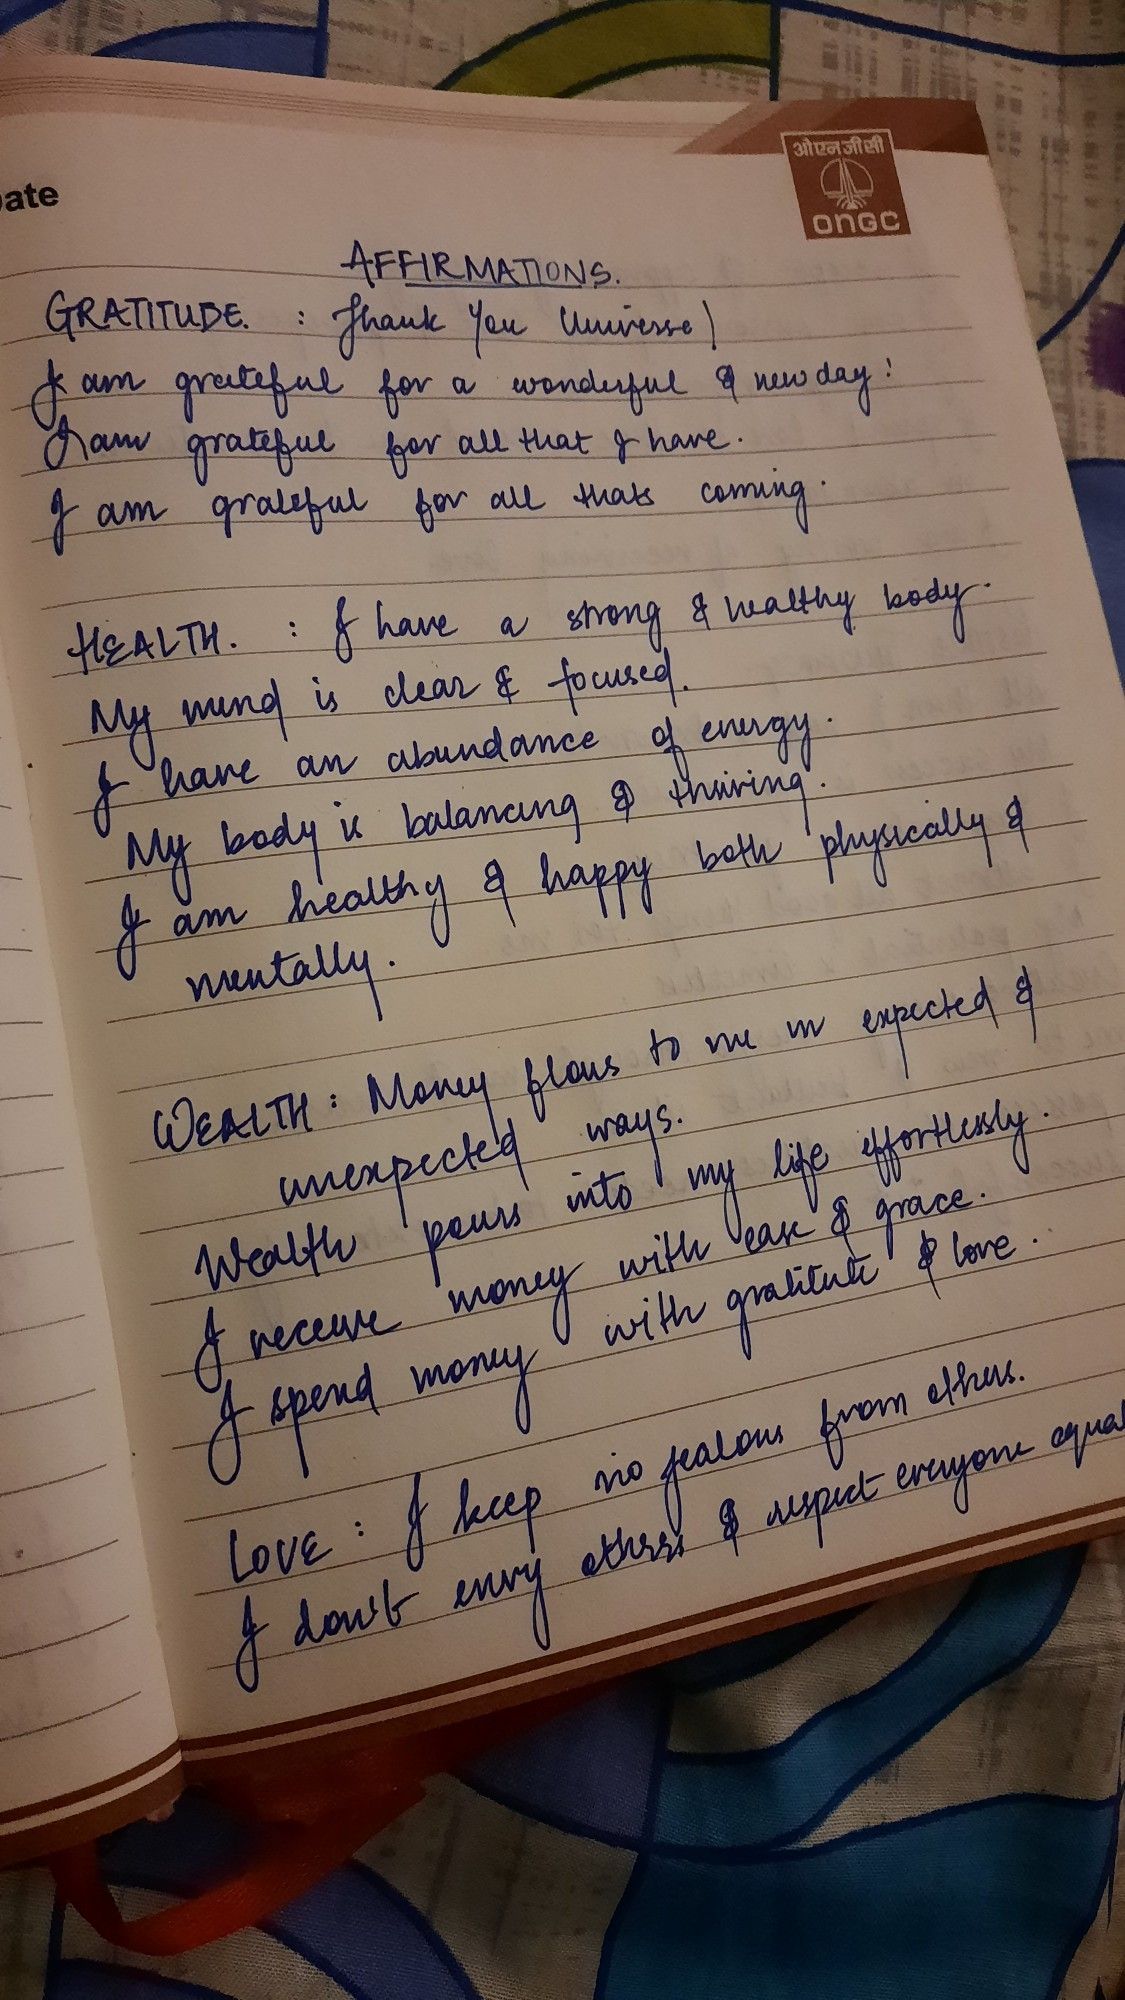 ate
ओएनजीसी
ONGC
AFFIRMATIONS.
GRATITUDE. : Thank You Universe!
I am grateful for a wonderful & new day!
I am grateful for all that I have.
I am grateful for all thats coming.
HEALTH. : I have a strong & healthy body.
My mind is clear & focused.
I have an abundance of energy.
My body is balancing & thriving.
I am healthy & happy both physically &
mentally.
WEALTH : Money flows to me in expected &
unexpected ways.
Wealth pours into my life effortlessly.
I receive money with ease & grace.
I spend money with gratitute & love.
LOVE : I keep no jealous from others.
I don't envy others & respect everyone equal